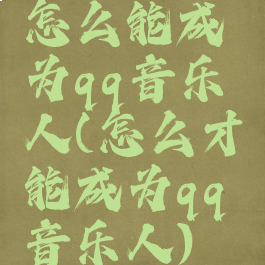 怎么能成
为qq音乐
人(怎么才
能成为qq
音乐人)